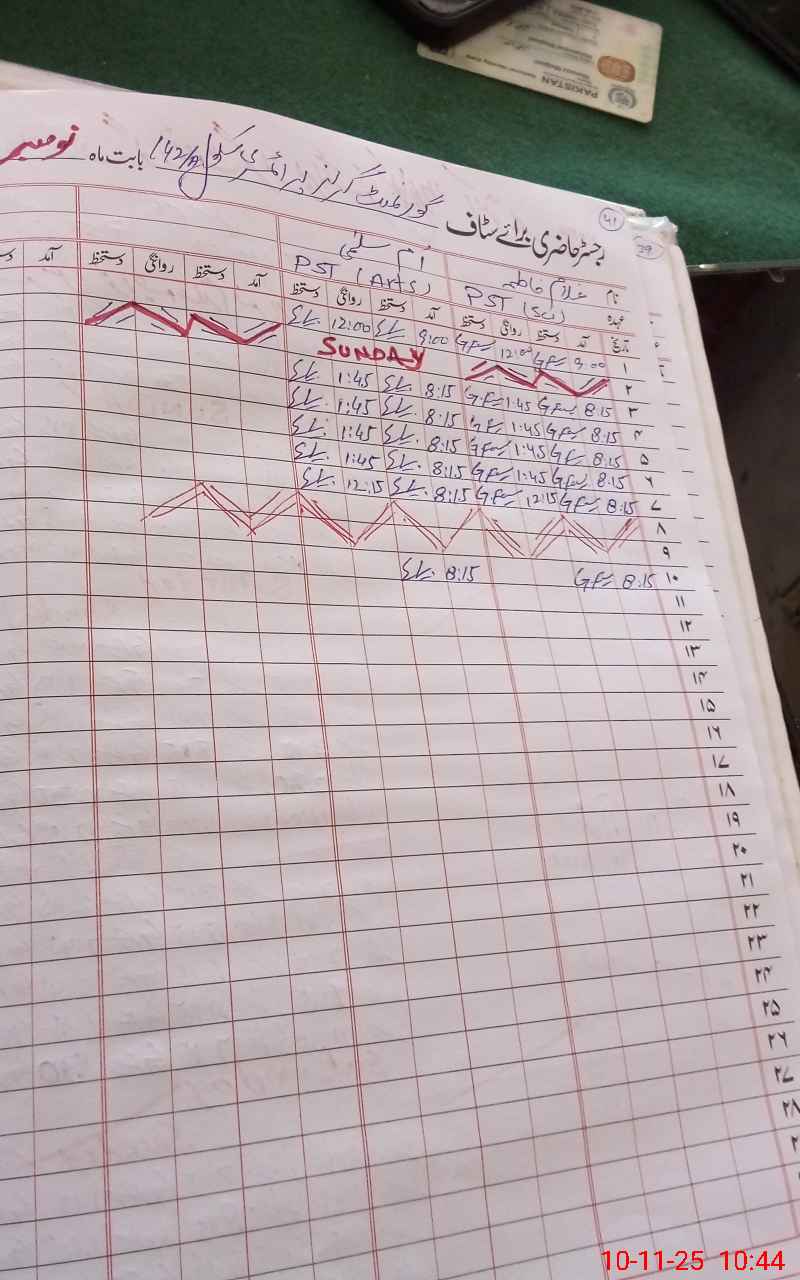 PAKISTAN National Identity Card
41
39
رجسٹر حاضری برائے سٹاف گورنمنٹ گرلز پرائمری سکول 142/ بابت ماہ نومبر
نام غلام فاطمہ ام سلمیٰ
عہدہ PST (Sci) PST (Arts)
تاریخ آمد دستخط روانگی دستخط آمد دستخط روانگی دستخط آمد دستخط روانگی دستخط آمد
۱ 9:00 GF 12:00 GF 9:00 12:00
۲ SUNDAY
۳ 8:15 GF 1:45 GF 8:15 1:45
۴ 8:15 GF 1:45 GF 8:15 1:45
۵ 8:15 GF 1:45 GF 8:15 1:45
۶ 8:15 GF 1:45 GF 8:15 1:45
۷ 8:15 GF 12:15 GF 8:15 12:15
۸
۹
۱۰ 8:15 GF 8:15
۱۱
۱۲
۱۳
۱۴
۱۵
۱۶
۱۷
۱۸
۱۹
۲۰
۲۱
۲۲
۲۳
۲۴
۲۵
۲۶
۲۷
۲۸
10-11-25 10:44